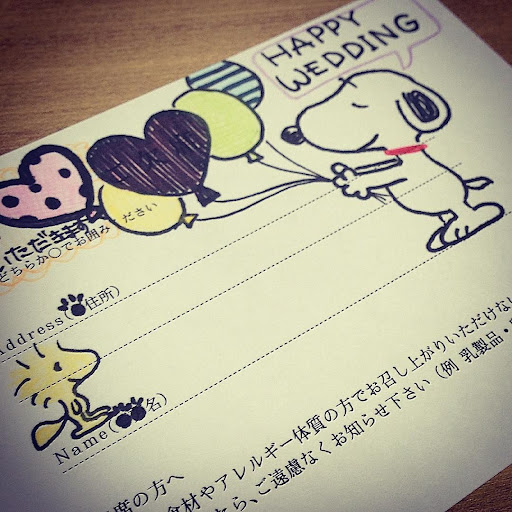 HAPPY
WEDDING
いただきます
どちらか〇でお囲みください
Address(住所)
Name(名)
席の方へ
食材やアレルギー体質の方でお召し上がりいただけな
たら、ご遠慮なくお知らせ下さい(例 乳製品・